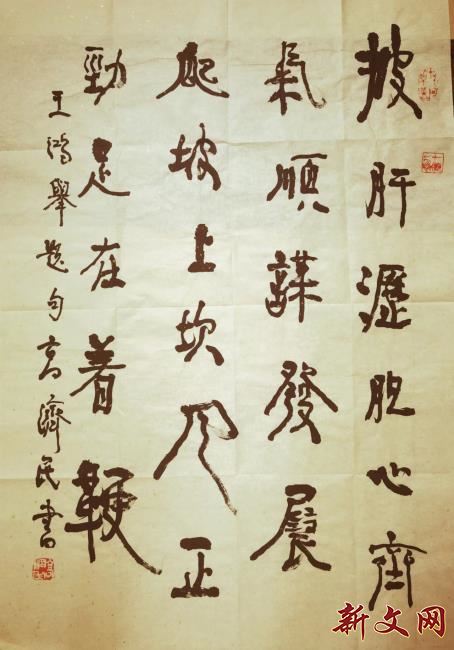 披肝瀝胆心齊
氣順謀發展
爬坡上坎风正
勁足在着鞭
王鴻舉題句高濟民書
新文网